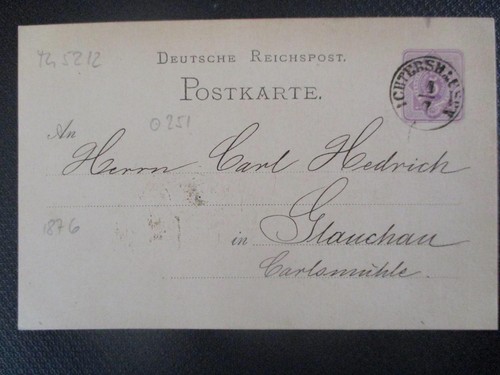 TG 5212
DEUTSCHE REICHSPOST.
POSTKARTE.
ICHTERSHAUSEN
1
7
0251
An
Herrn Carl Hedrich
1876
in Glauchau
Carlsmühle.